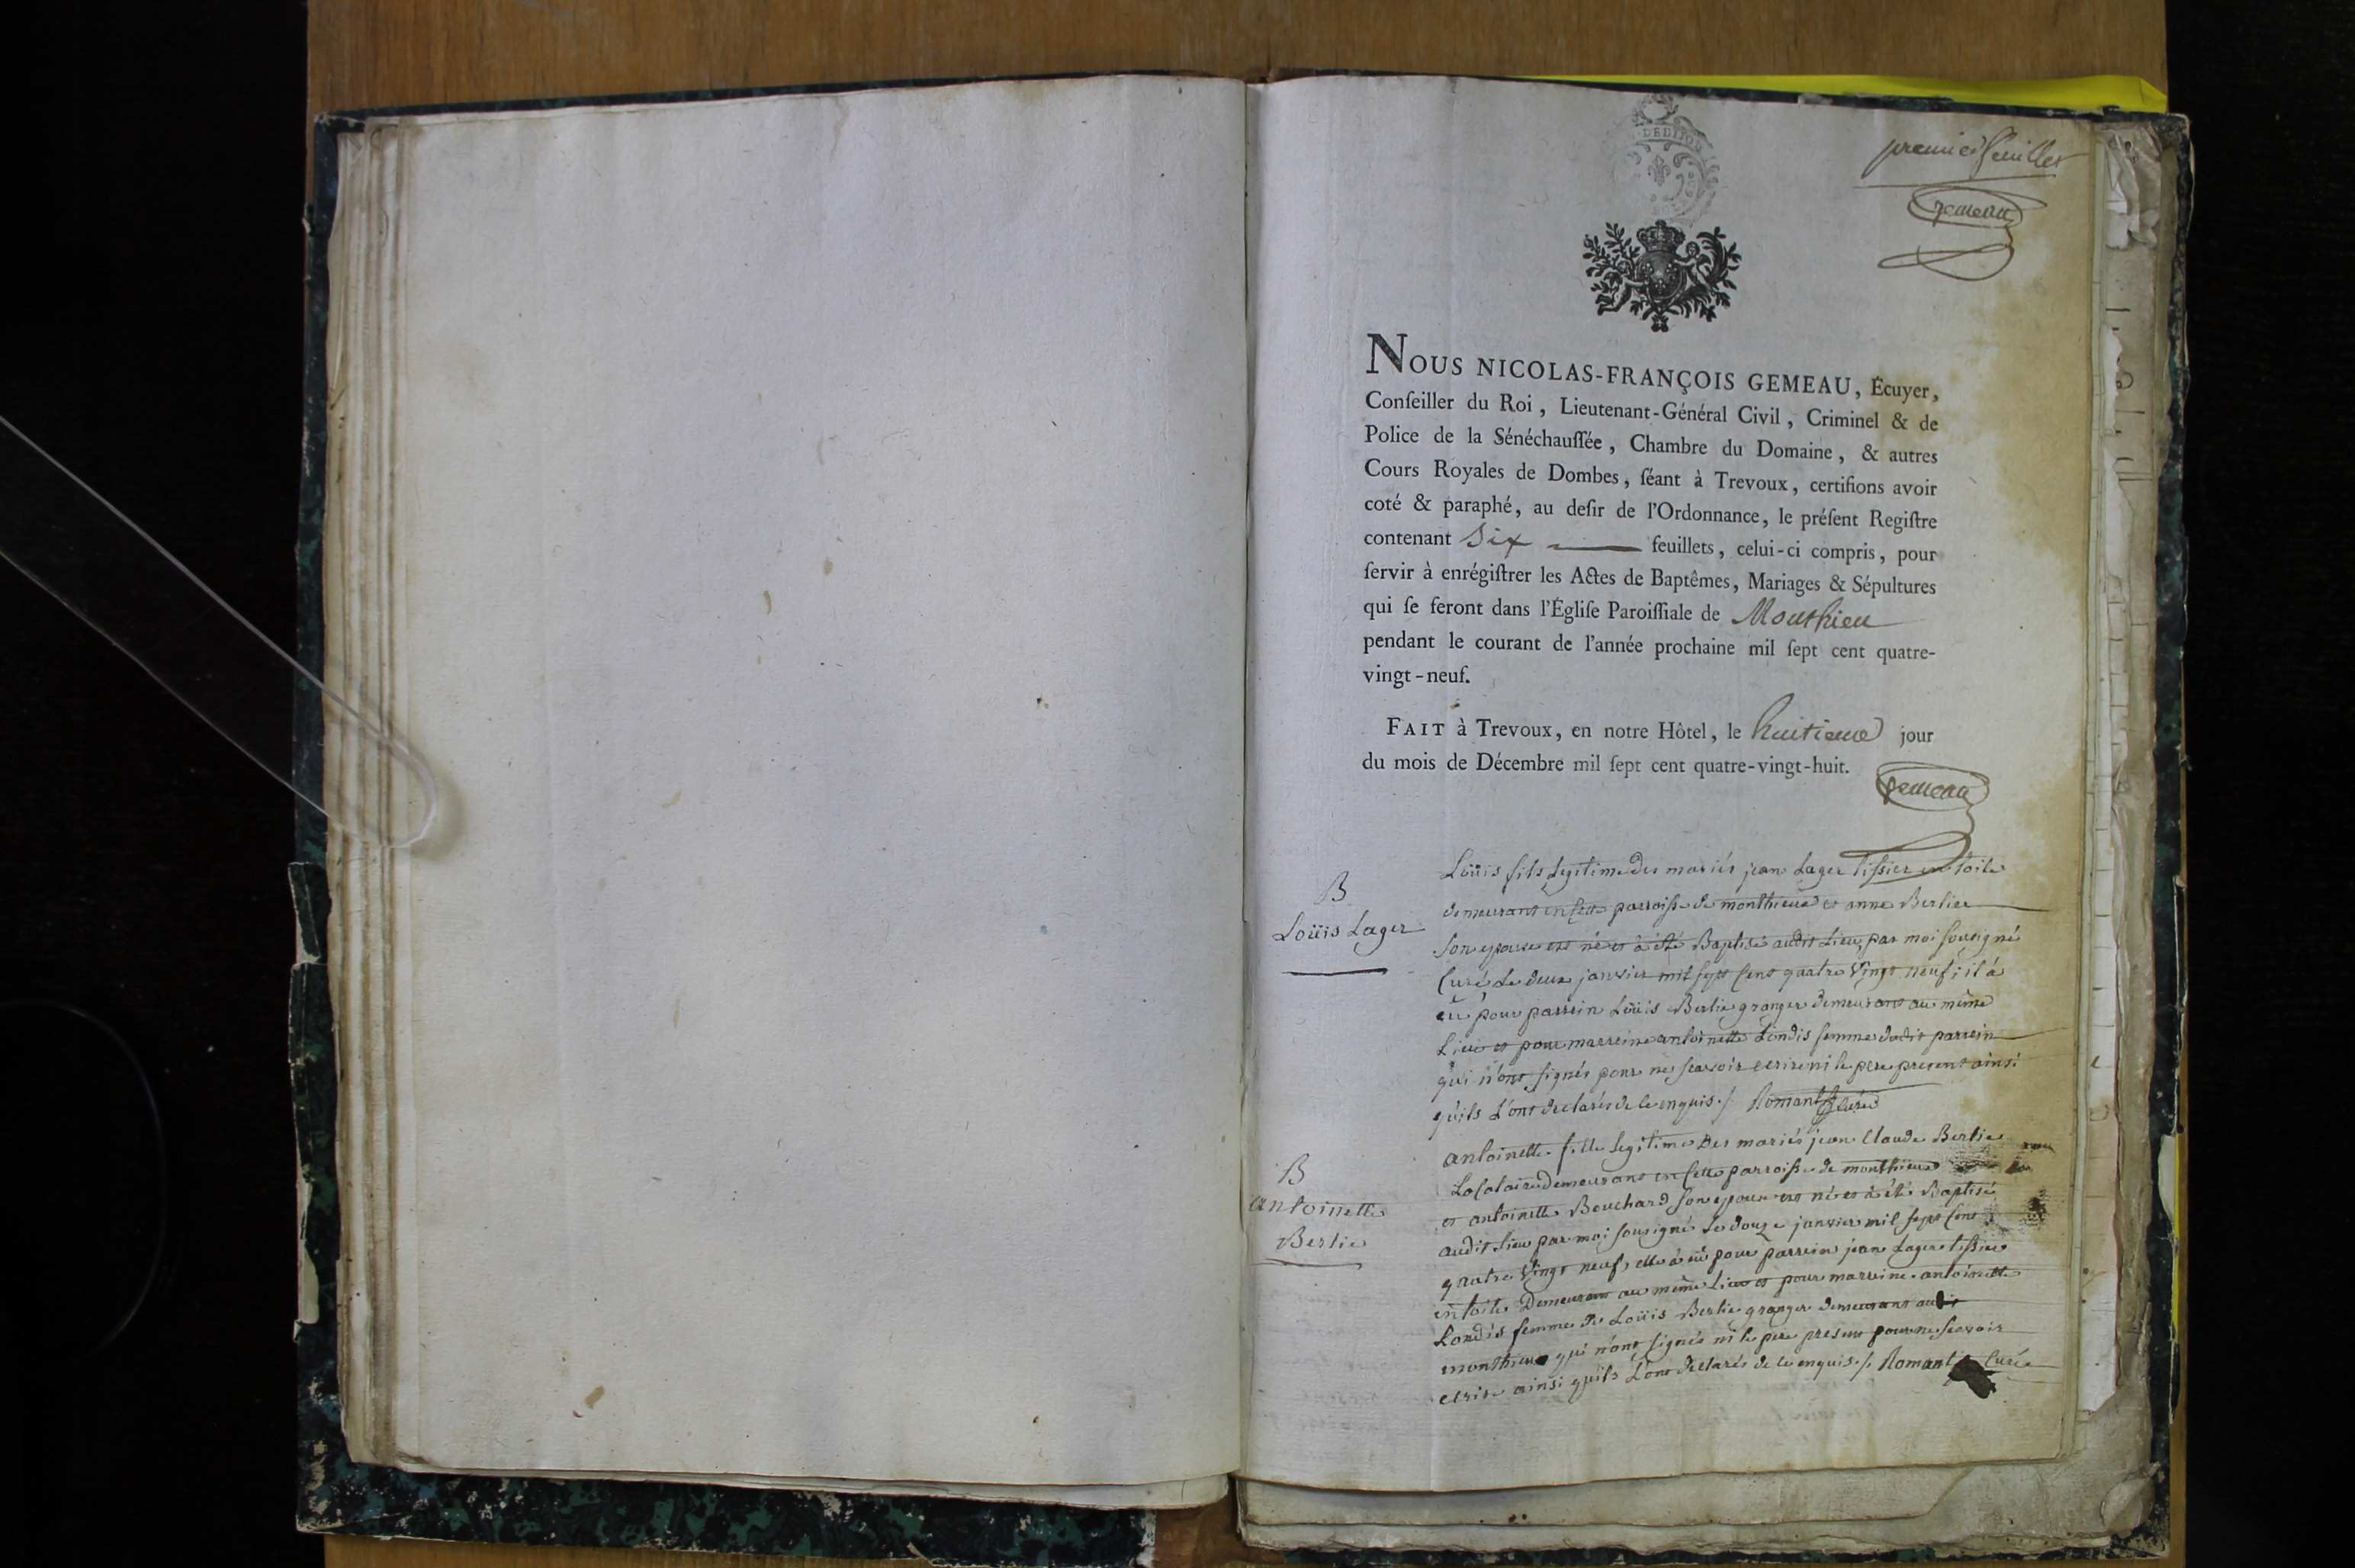 DEDITION
premier feuillet
gemeau
NOUS NICOLAS-FRANÇOIS GEMEAU, Écuyer,
Conſeiller du Roi, Lieutenant-Général Civil, Criminel & de
Police de la Sénéchauſſée, Chambre du Domaine, & autres
Cours Royales de Dombes, ſéant à Trevoux, certifions avoir
coté & paraphé, au deſir de l'Ordonnance, le préſent Regiſtre
contenant Six feuillets, celui-ci compris, pour
ſervir à enrégiſtrer les Actes de Baptêmes, Mariages & Sépultures
qui ſe feront dans l'Égliſe Paroiſſiale de Monthieu
pendant le courant de l'année prochaine mil ſept cent quatre-
vingt-neuf.
FAIT à Trevoux, en notre Hôtel, le huitieme jour
du mois de Décembre mil ſept cent quatre-vingt-huit.
gemeau
B
Loüis Lager
Loüis fils legitime des mariés jean Lager tissier en toile
demeurant en cette parroisse de monthieux et anne Berlier
son epouse est né et à été Baptisé audit Lieu par moi sousigné
Curé Le deux janvier mil sept cent quatre Vingt neuf; il à
eû pour parrein Loüis Berlie granger demeurant au même
Lieu et pour marreine antoinette Londis femme dudit parrein
qui n'ont signés pour ne scavoir ecrire ni le pere present ainsi
qu'ils L'ont declarés de ce enquis ./. Romant Curé
B
antoinette
Berlie
antoinette fille legitime Des mariés jean Claude Berlie
Locataire demeurant en cette parroisse de monthieux
et antoinette Bouchard son epouse est né et à été Baptisé
audit Lieu par moi sousigné Le douze janvier mil sept cent
quatre Vingt neuf, elle à eû pour parrein jean Lager tissier
en toile Demeurant au même Lieu et pour marreine antoinette
Londis femme de Loüis Berlie granger demeurant audit
monthieux qui n'ont signés ni le pere present pour ne scavoir
ecrire ainsi qu'ils L'ont declarés de ce enquis ./. Romant Curé